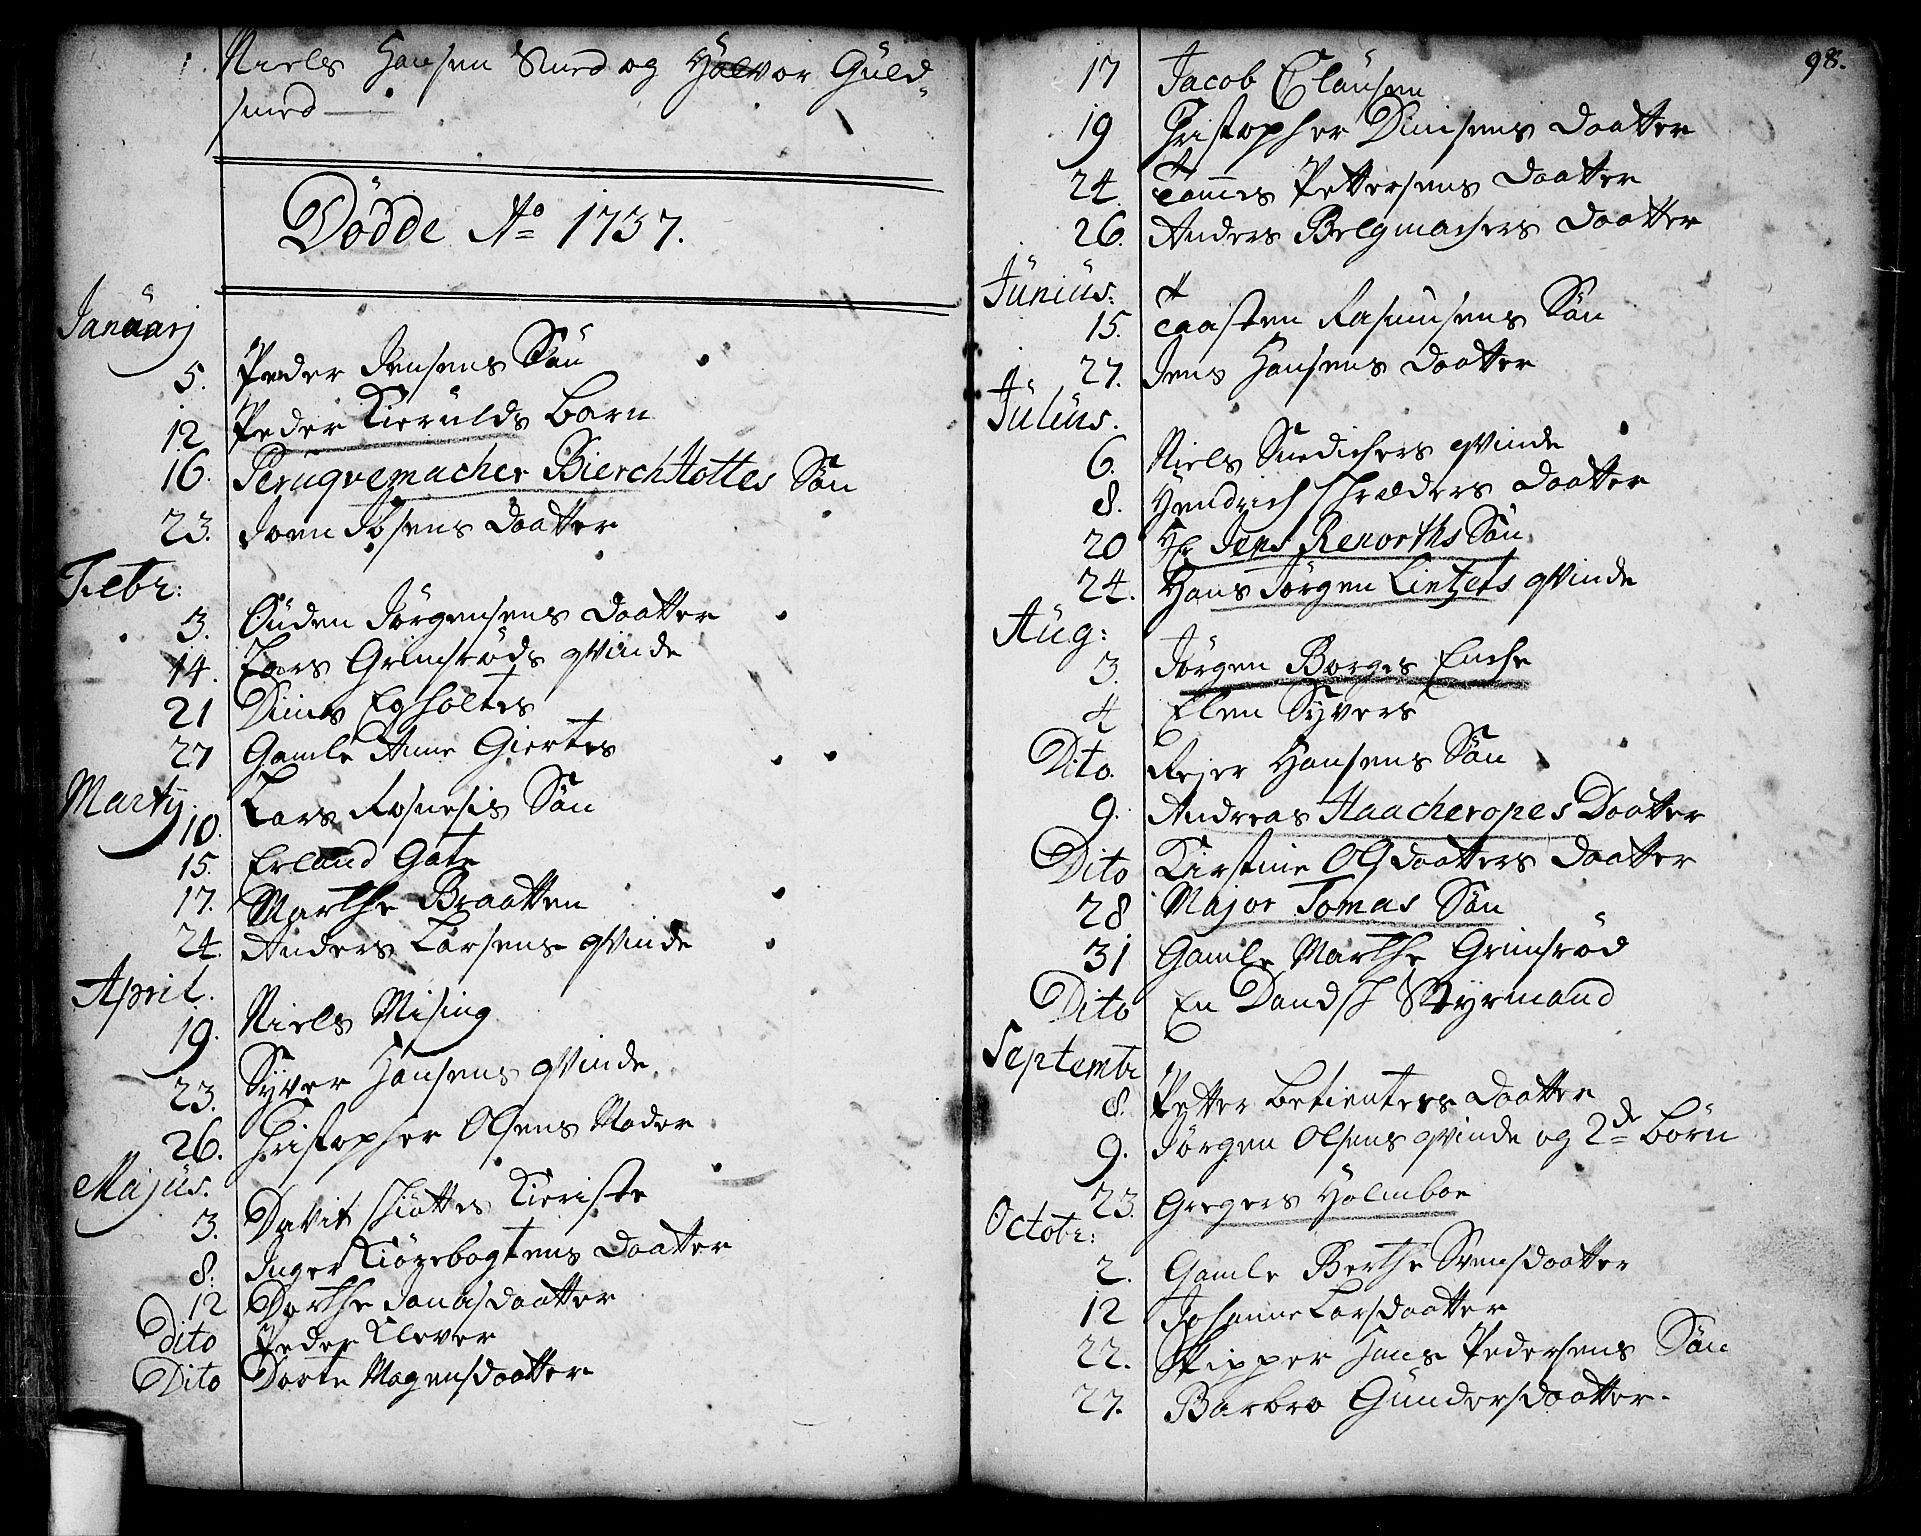 1. Niels Hansen Smed og Halvor Güld-
smed
Dödde Ao 1737.
Januarj
5. Peder Jensens Sön
12. Peder Kierulds barn
16. Peruqvemacher BierchHottes Sön
23. Joen Josens daatter
Febr:
3. Ouden Jörgensens daatter
14. Lars Grimsröds qvinde
21 Dines Egholtes
27 Gamle Anne Giertes
Martij
10. Lars Rosnesis Sön
15. Erland Gate
17. Marthe Braatten
24. Anders Larsens qvinde
April.
19. Niels Mising
23. Syver Hansens qvinde
26. Christopher Olsens Moder
Majüs.
3. Davit Schiöttes Kieriste
8. Inger Kiögebogtens daatter
12 Dorthe Jonasdaatter
dito Peder Klever
Dito Dorte Mogensdaatter
98.
17 Jacob Claüsen
19 Christopher Dinisens daatter
24. Tommes Pettersens daatter
26. Anders Belgmachers daatter
Jünius:
15. Taasten Rasmusens Sön
27. Jens Hansens daatter
Jülius.
6. Niels Snedichers qvinde
8. Hendrich Schræders daatter
20 Hr Jens Renorths Sön
24. Hans Jörgen Lintzets qvinde
Aüg:
3. Jörgen Borges Enche
4 Elen Syvers
Dito. Rejer Hansens Sön
9. Andreas Haacheropes Daatter
Dito Kirstine Olsdaatters daatter
28 Major Tomas Sön
31 Gamle Marthe Grimsröd
Dito En Dandsch Styrmand
Septembr
8. Petter betienters daatter
9. Jörgen Olsens qvinde og 2de börn
23. Gregers Holmboe
Octobr:
2. Gamle Berthe Svensdaatter
12 Johanne Larsdaatter
22. Skipper Hans Pedersens Sön
27. Barbro Gündersdaatter.